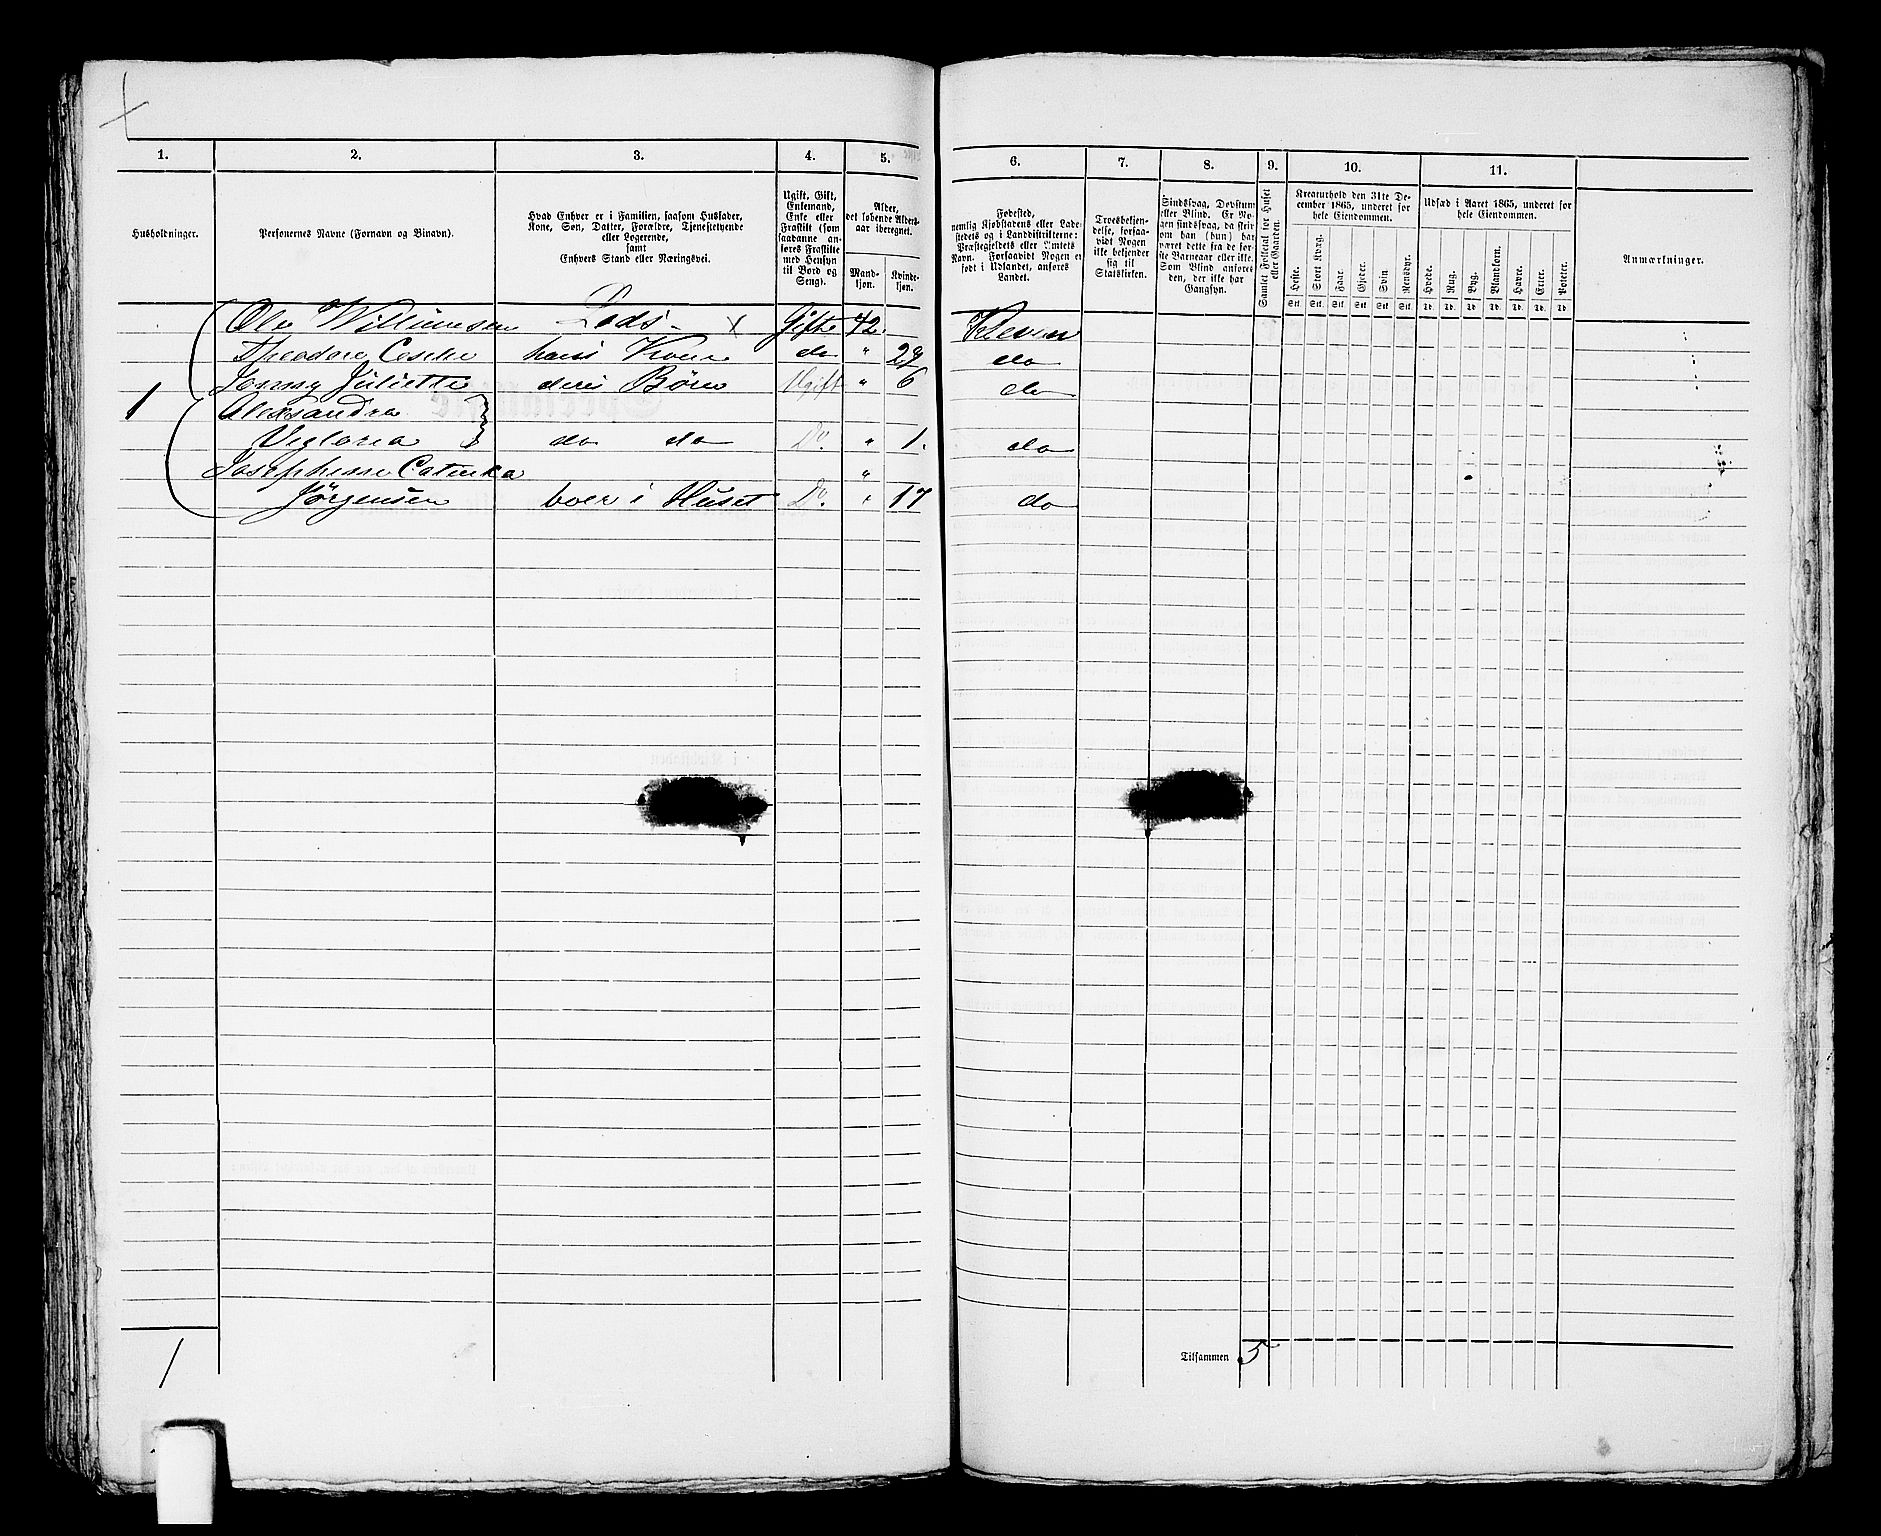 1. 2. 3. 4. 5. 6. 7. 8. 9. 10. 11.
Husholdninger.
Personernes Navne (Fornavn og Binavn).
Hvad Enhver er i Familien, saasom Husfader,
Kone, Søn, Datter, Forældre, Tjenestetyende
eller Logerende,
samt
Enhvers Stand eller Næringsvei.
Ugift, Gift,
Enkemand,
Enke eller
Fraskilt (som
saadanne an-
føres Fraskilte
med Hensyn
til Bord og
Seng).
Alder,
det løbende Alders-
aar iberegnet.
Mand-
kjøn.
Kvinde-
kjøn.
Fødested,
nemlig Kjøbstadens eller Lade-
stedets og i Landdistrikterne:
Præstegjeldets eller Amtets
Navn. Forsaavidt Nogen er
født i Udlandet, anføres
Landet.
Troesbekjen-
delse, forsaa-
vidt Nogen
ikke bekjender
sig til
Statskirken.
Sindssvag, Døvstum
eller Blind. Er No-
gen sindssvag, da skriv
om han (hun) har
været dette fra de før-
ste Barneaar eller ikke.
Som Blind anføres
den, der ikke har
Gangsyn.
Samlet Folketal for Huset
eller Gaarden.
Kreaturhold den 31te De-
cember 1865, underet for
hele Eiendommen.
Heste. Stort Kvæg. Faar. Gjeder. Sviin Rensdyr.
Stk. Stk. Stk. Stk. Stk. Stk.
Udsæd i Aaret 1865, underet for
hele Eiendommen.
Hvede. Rug. Byg. Blandkorn. Havre. Erter. Poteter.
Td. Td. Td. Td. Td. Td. Td.
Anmærkninger.
Ole Willumsen Lods - x Gifte 42. Kleven
Theodore hans Kone do " 29 do
Jonny Juliette deres Børn Ugift " 6 do
1 Aleksandra
Vegtoria do do Do. " 1. do
Josephine Catinka "
Jørgensen boer i Huset Do. " 17 do
1
Tilsammen 5